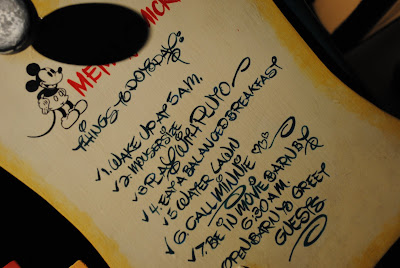 MICK
THINGS TO DO TODAY:
√1. WAKE UP AT 5 A.M.
√2. MOUSERSISE
√3 PLAY WITH PLUTO
√4. EAT A BALANCED BREAKFAST
√5 WATER LAWN
√6 CALL MINNIE
√7. BE IN MOVIE BARN BY
6:30 A.M.
OPEN BARN TO GREET
GUESTS